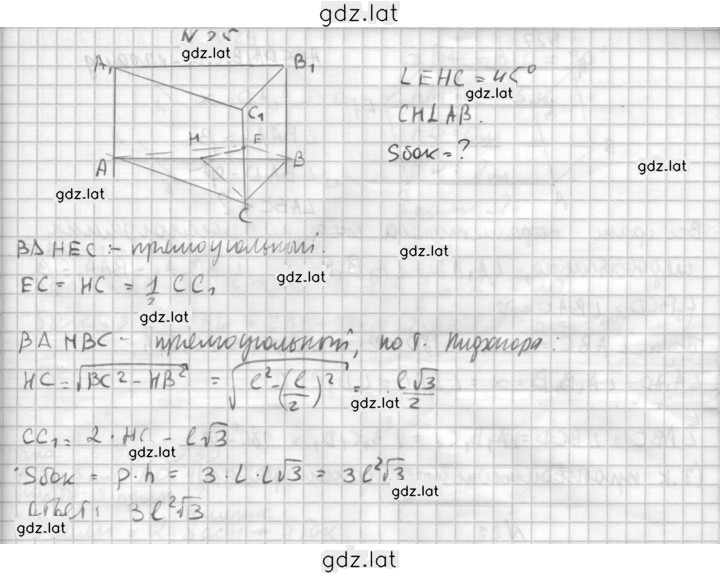 gdz.lat
N 25
gdz.lat
A₁ B₁
C₁
H E
A B
C
∠EHC = 45°
gdz.lat
CH⊥AB.
Sбок = ?
gdz.lat
gdz.lat
В Δ HEC :- прямоугольный.
gdz.lat
EC = HC = 1/2 CC₁
gdz.lat
gdz.lat
В Δ HBC - прямоугольный, по т. Пифагора:
HC = √(BC² - HB²) = √(l² - (l/2)²) = l√3/2
gdz.lat
CC₁ = 2 · HC = l√3
gdz.lat
Sбок = p·h = 3·l·l√3 = 3l²√3
gdz.lat
Ответ: 3l²√3
gdz.lat
gdz.lat
gdz.lat